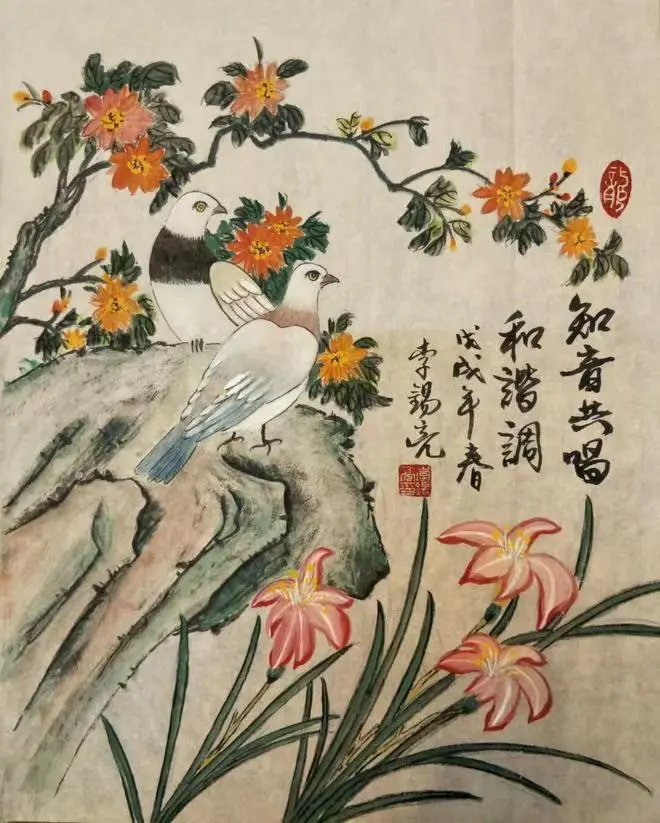 知音共唱
和谐調
戊戌年春
李锡亮